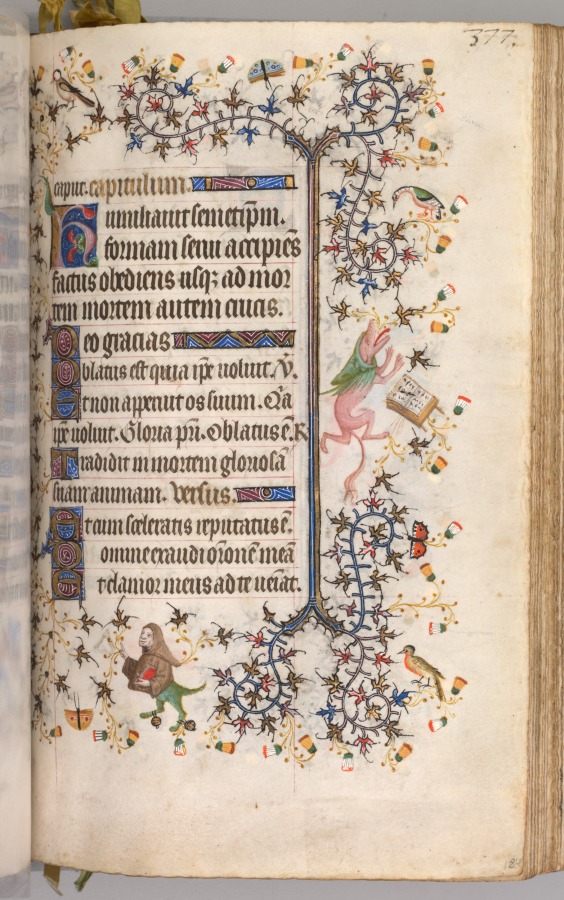 377.
caput. capitulum.
Humiliauit semetip̃m.
formam serui accipiēs
factus obediens usq; ad mor
tem mortem autem crucis.
Deo gracias
Oblatus est quia ip̃e uoluit. V̾.
Et non apperuit os suum. Q̃a
ip̃e uoluit. Gloria pr̃i. Oblatus ē. R̾
Tradidit in mortem gloriosā
suam animam. Versus.
Et cum sceleratis reputatus ē.
Domine exaudi or̃onē meā
Et clamor meus ad te ueīat.